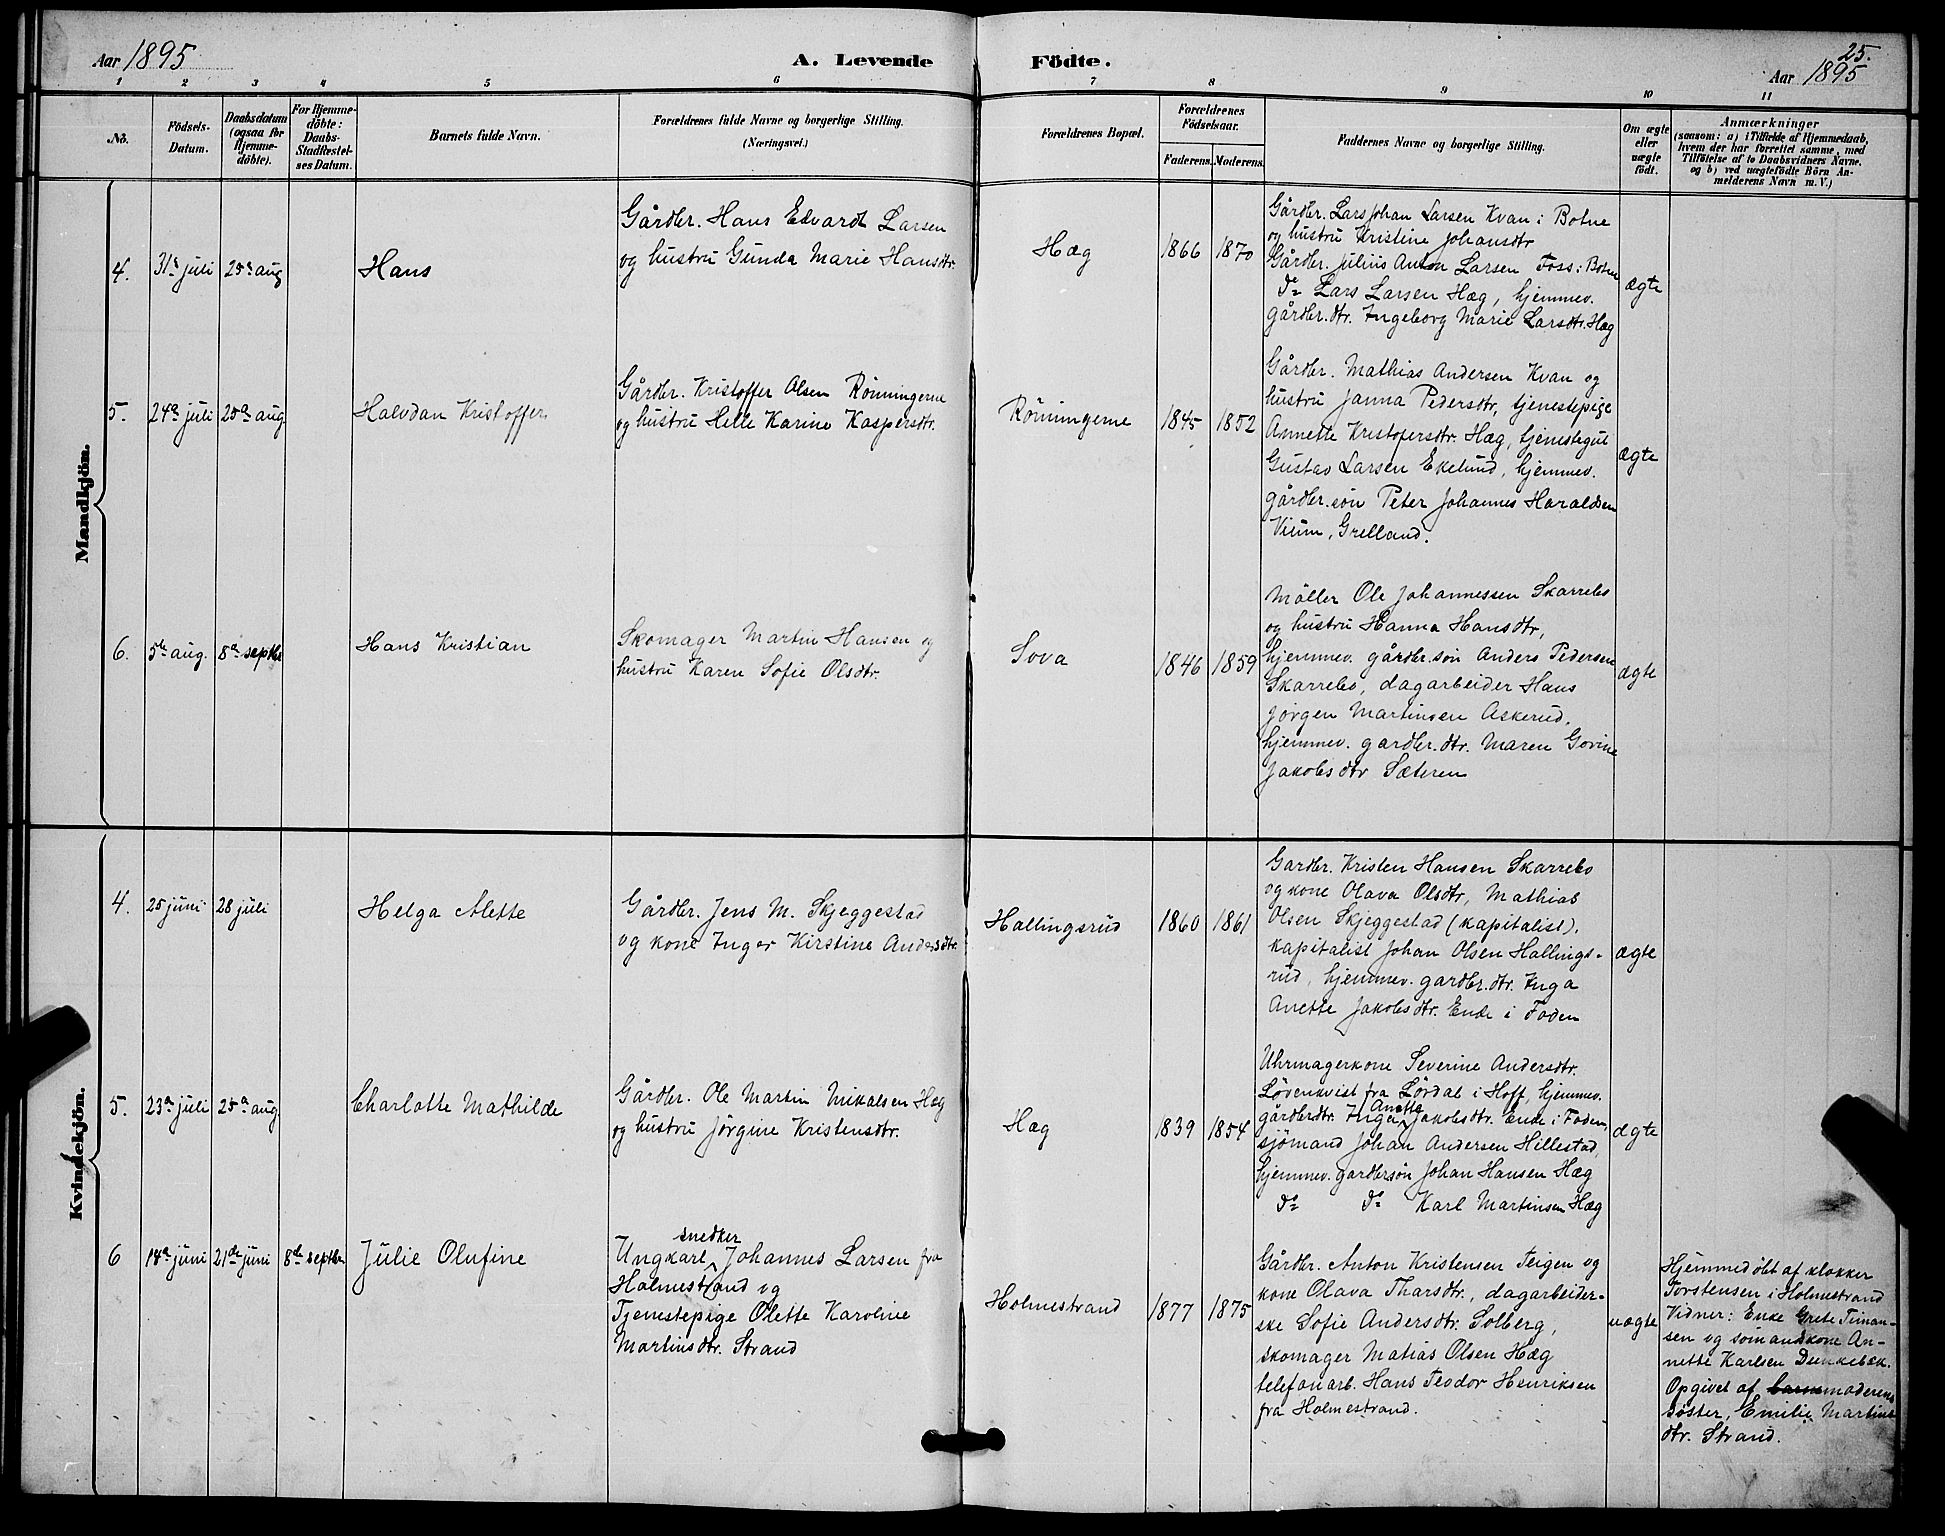 Aar 1895
A. Levende Födte.
25.
Aar 1895
1 2 3 4 5 6 7 8 9 10 11
No.
Födsels-
Datum.
Daabsdatum
(ogsaa for
Hjemme-
döbte).
For Hjemme-
döbte:
Daabs-
Stadfestel-
ses Datum.
Barnets fulde Navn.
Forældrenes fulde Navne og borgerlige Stilling.
(Næringsvei.)
Forældrenes Bopæl.
Forældrenes
Födselsaar.
Faderens. Moderens.
Faddernes Navne og borgerlige Stilling.
Om ægte
eller
uægte
født.
Anmærkninger
(saasom: a) i Tilfælde af Hjemmedaab,
hvem der har forrettet samme, med
Tilföielse af to Daabsvidners Navne.
og b) ved uægtefödte Börn An-
melderens Navn m. V.)
Mandkjön.
4.
31te juli
25de aug
Hans
Gårdbr. Hans Edvardt Larsen
og hustru Gunda Marie Hansdtr.
Hæg
1866
1870
Gårdbr. Lars Johan Larsen Kvan i Botne
og hustru Kristine Johansdtr
Gårdbr. Julius Anton Larsen Foss i Botne
Do Lars Larsen Hæg, hjemmev.
gårdbr.dtr. Ingeborg Marie Larsdtr. Hæg
ægte
5.
24de juli
25de aug
Halvdan Kristoffer
Gårdbr. Kristoffer Olsen Rönningerne
og hustru Helle Karine Kaspersdtr.
Rönningerne
1845
1852
Gårdbr. Mathias Andersen Kvan og
hustru Janna Pedersdtr, tjenestepige
Annette Kristofersdtr. Hæg, tjenestegut
Gustav Larsen Ekelund, hjemmev.
gårdbr.sön Peter Johannes Haraldsen
Vium, Grelland.
ægte
6.
5te aug.
8de septbr
Hans Kristian
Skomager Martin Hansen og
hustru Karen Sofie Olsdtr.
Sova
1846
1859
Möller Ole Johannessen Skarrebo
og hustru Hanna Hansdtr,
hjemmev. gårdbr.sön Anders Pedersen
Skarrebo, dagarbeider Hans
Jörgen Martinsen Askerud,
hjemmev. gardbr.dtr. Maren Govine
Jakobsdtr Sæteren
ægte
Kvindekjön.
4.
25 juni
28 juli
Helga Alette
Gårdbr. Jens M. Skjeggestad
og kone Inger Kirstine Andersdtr.
Hallingsrud
1860
1861
Gardbr. Kristen Hansen Skarrebo
og kone Olava Olsdtr, Mathias
Olsen Skjeggestad (kapitalist),
kapitalist Johan Olsen Hallings-
rud, hjemmev. gardbr.dtr. Inga
Anette Jakobsdtr. Ende i Foden
ægte
5.
23de juli
25de aug
Charlotte Mathilde
Gårdbr. Ole Martin Mikalsen Hæg
og hustru Jörgine Kristensdtr.
Hæg
1839
1854
Uhrmagerkone Severine Andersdtr.
Lövenkvist fra Lördal i Hoff, hjemmev.
gårdbrdtr. Inga Anette Jakobsdtr. Ende i Foden,
sjömand Johan Andersen Hillestad,
hjemmev. gardbrsön Johan Hansen Hæg
Do Do Karl Martinsen Hæg
ægte
6
14de juni
21de juni
8de septbr
Julie Olufine
Ungkarl, snedker Johannes Larsen fra
Holmestrand og
Tjenestepige Olette Karoline
Martinsdtr. Strand
Holmestrand
1877
1875
Gårdbr. Anton Kristensen Teigen og
kone Olava Tharsdtr., dagarbeider-
ske Sofie Andersdtr. Solberg,
skomager Matias Olsen Hæg
telefonarb. Hans Teodor Henriksen
fra Holmestrand.
uægte
Hjemmedöbt af klokker
Torstensen i Holmestrand
Vidner: Enke Grete Timan-
sen og sömandskone An-
nette Karlsen Dunkebæk.
Opgivet af barns moderens
söster, Emilie Martins
dtr. Strand.